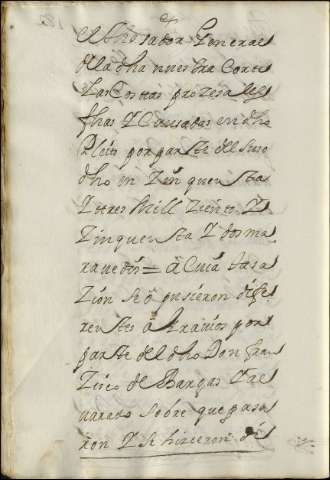 el tasador General
de la dha nuestra Corte
las Costas prozesales
fhas Y Causadas en dho
Pleito por parte del suso
dho en Zinquenta
Y tres mill Ziento Y
Zinquenta Y dos ma
ravedis = a Cuia tasa
Zion se opusieron dife
rentes agravios por
parte del dho Don fran
Zisco de Bargas
sobre que pasa
ron Y se hizieron di